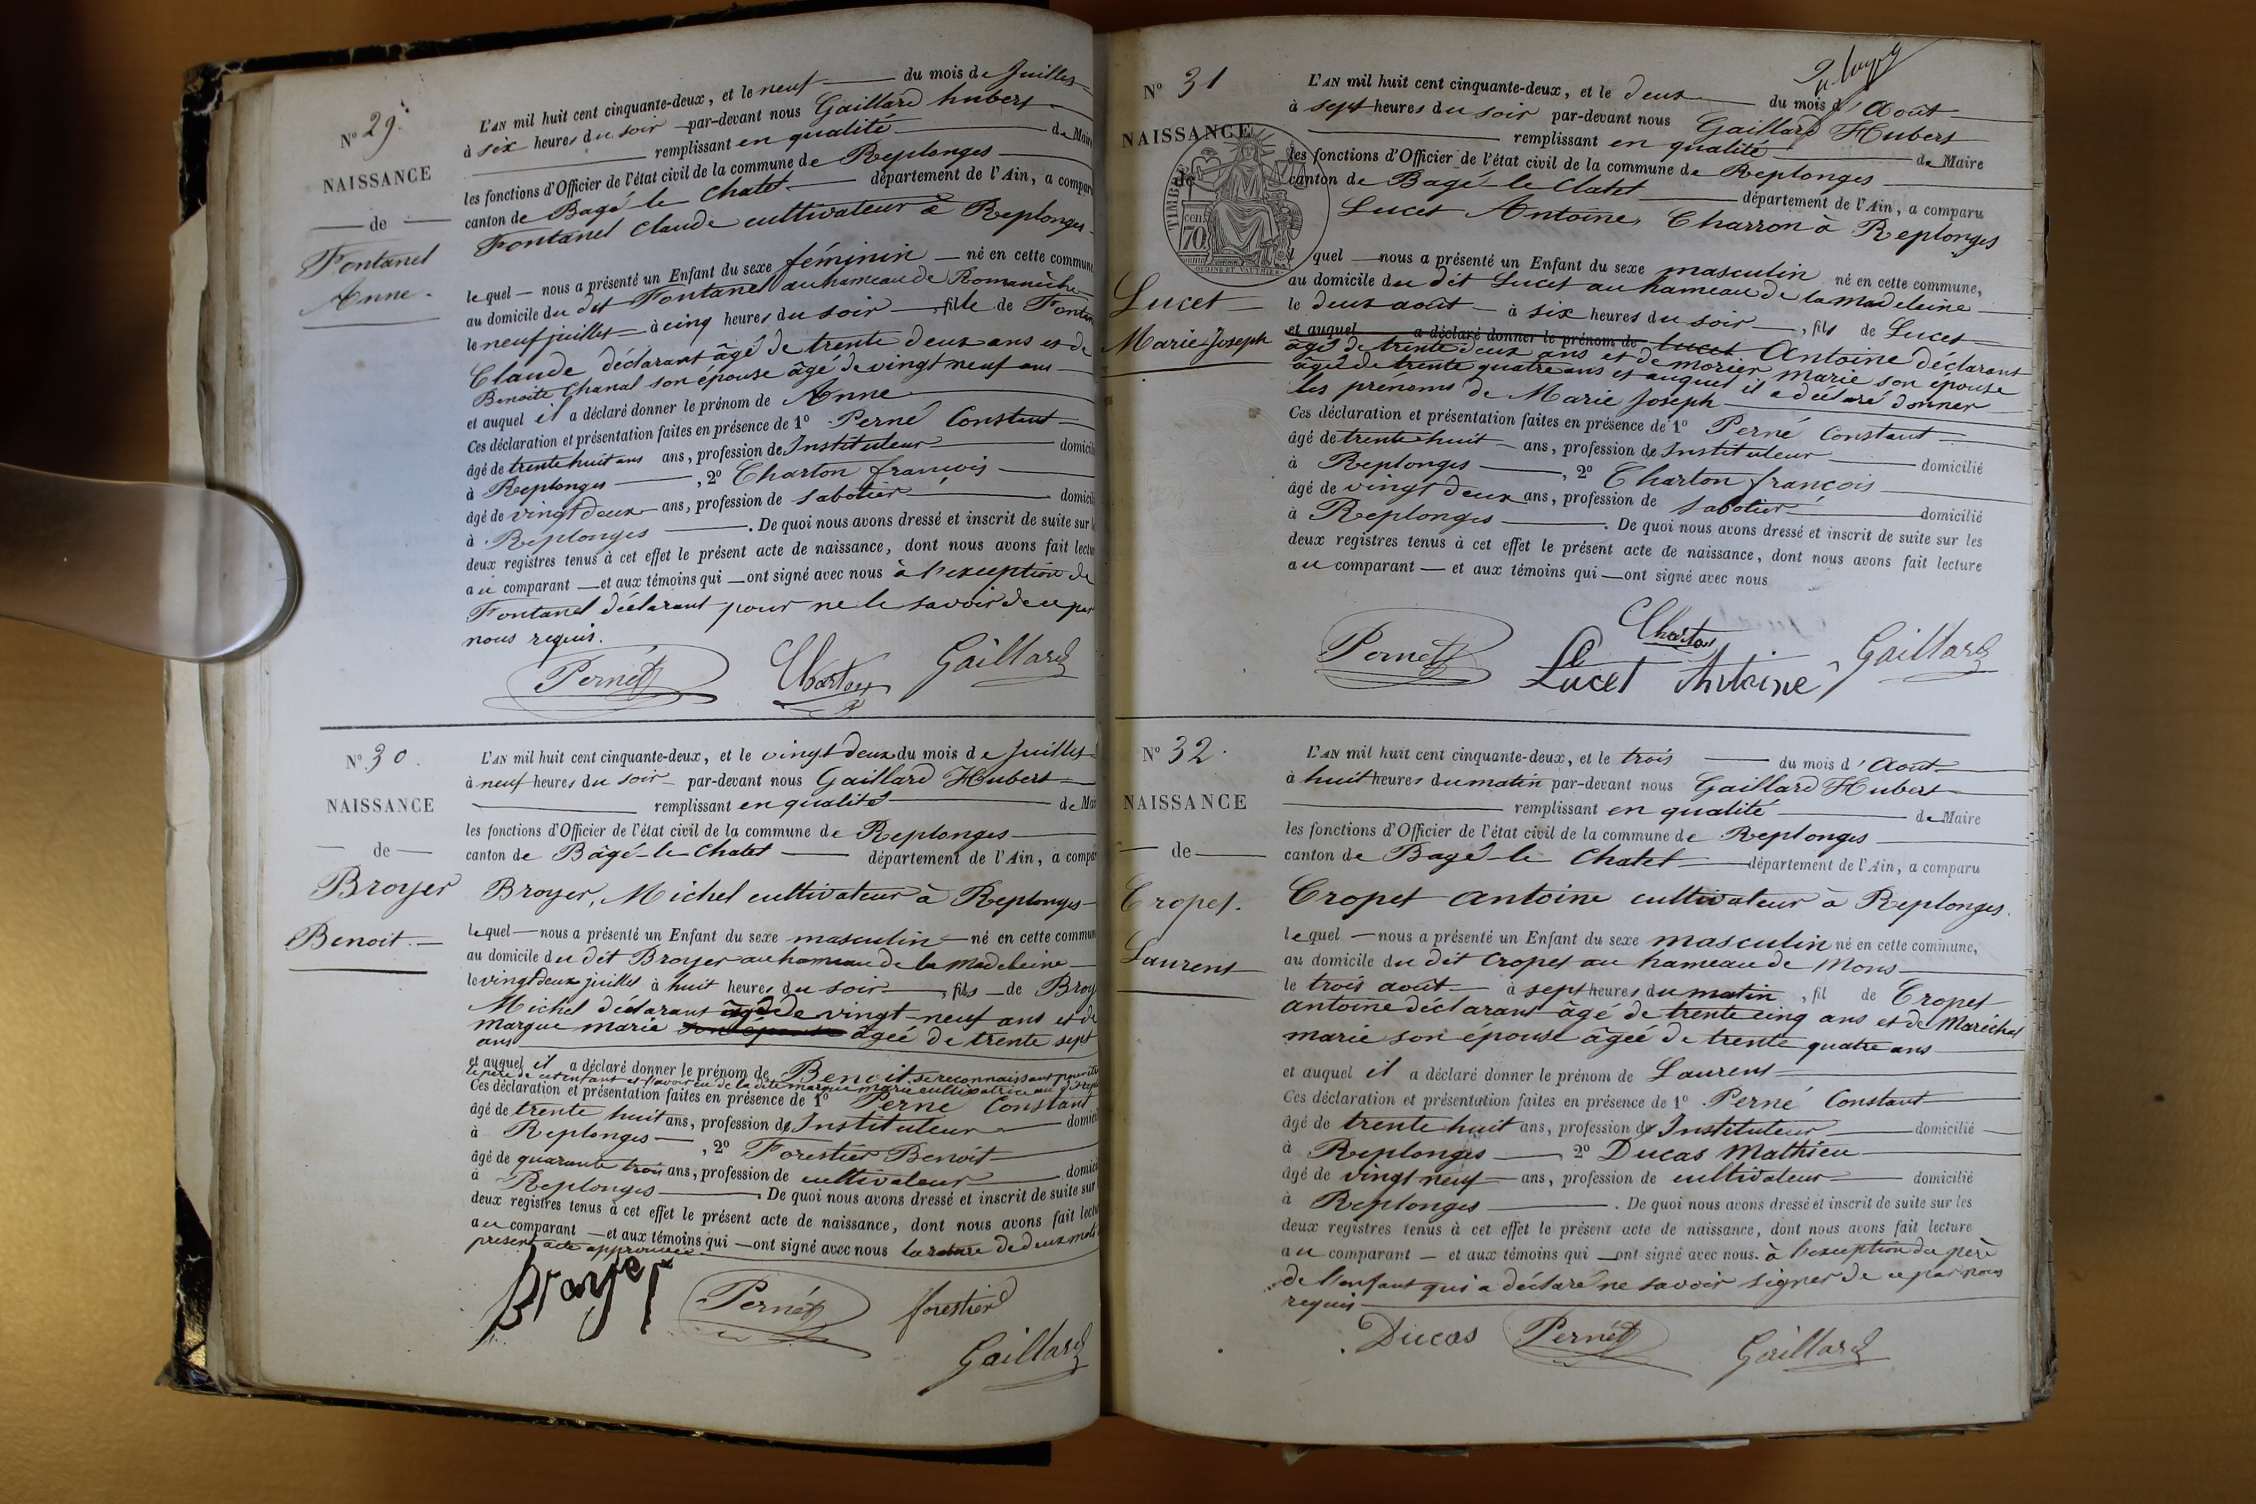 N° 29.
NAISSANCE
de
Fontanel
Anne.
L'AN mil huit cent cinquante-deux, et le neuf du mois de Juillet
à six heures du soir par-devant nous Gaillard hubert
remplissant en qualité de Maire
les fonctions d'Officier de l'état civil de la commune de Replonges
canton de Bagé-le-Chatel département de l'Ain, a compar
Fontanel Claude cultivateur à Replonges
lequel nous a présenté un Enfant du sexe féminin né en cette commune
au domicile du dit Fontanel au hameau de Romanèche
le neuf juillet à cinq heures du soir, fille de Fontan
Claude déclarant âgé de trente deux ans et de
Benoite Chanal son épouse âgé de vingt neuf ans
et auquel il a déclaré donner le prénom de Anne
Ces déclaration et présentation faites en présence de 1° Perné Constant
âgé de trente huit ans ans, profession de Instituteur domicili
à Replonges, 2° Charton francois
âgé de vingt deux ans, profession de sabotier domicili
à Replonges. De quoi nous avons dressé et inscrit de suite sur l
deux registres tenus à cet effet le présent acte de naissance, dont nous avons fait lectu
au comparant et aux témoins qui ont signé avec nous à l'exception de
Fontanel déclarant pour ne le savoir de ce par
nous requis.
Perné Charton Gaillard
N° 30.
NAISSANCE
de
Broyer
Benoit.
L'AN mil huit cent cinquante-deux, et le vingt deux du mois de Juillet
à neuf heures du soir par-devant nous Gaillard Hubert
remplissant en qualité de Mai
les fonctions d'Officier de l'état civil de la commune de Replonges
canton de Bâgé-le-Chatel département de l'Ain, a compar
Broyer, Michel cultivateur à Replonges
lequel nous a présenté un Enfant du sexe masculin né en cette commun
au domicile du dit Broyer au hameau de la Madeleine
le vingt deux juillet à huit heures du soir, fils de Broy
Michel déclarant âgé de vingt-neuf ans et de
Margue marie son épouse âgée de trente sept
ans
et auquel il a déclaré donner le prénom de Benoit se reconnaissant pour être
le père de cet enfant et l'avoir eu de la dite margue marie cultivatrice au dit repl
Ces déclaration et présentation faites en présence de 1° Perné Constant
âgé de trente huit ans, profession de Instituteur domici
à Replonges, 2° Forestier Benoit
âgé de quarante trois ans, profession de cultivateur domici
à Replonges. De quoi nous avons dressé et inscrit de suite sur
deux registres tenus à cet effet le présent acte de naissance, dont nous avons fait lectu
au comparant et aux témoins qui ont signé avec nous la rature de deux mots
présent acte approuvée
Broyer Perné forestier
Gaillard
N° 31
NAISSANCE
de
TIMBRE
70 cen.
Lucet
Marie Joseph
L'AN mil huit cent cinquante-deux, et le deux du mois d'Août
à sept heures du soir par-devant nous Gaillard Hubert
remplissant en qualité de Maire
les fonctions d'Officier de l'état civil de la commune de Replonges
canton de Bagé-le-Chatel département de l'Ain, a comparu
Lucet Antoine, Charron à Replonges
quel nous a présenté un Enfant du sexe masculin né en cette commune,
au domicile du dit Lucet au hameau de la Madeleine
le deux août à six heures du soir, fils de Lucet
et auquel a déclaré donner le prénom de Lucet Antoine déclarant
âgé de trente deux ans et de morier Marie son épouse
âgée de trente quatre ans et auquel il a déclaré donner
les prénoms de Marie Joseph
Ces déclaration et présentation faites en présence de 1° Perné Constant
âgé de trente huit ans, profession de Instituteur domicilié
à Replonges, 2° Charton françois
âgé de vingt deux ans, profession de sabotier domicilié
à Replonges. De quoi nous avons dressé et inscrit de suite sur les
deux registres tenus à cet effet le présent acte de naissance, dont nous avons fait lecture
au comparant et aux témoins qui ont signé avec nous
Perné Charton Gaillard
Lucet Antoine
N° 32.
NAISSANCE
de
Cropet.
Laurent
L'AN mil huit cent cinquante-deux, et le trois du mois d'Août
à huit heures du matin par-devant nous Gaillard Hubert
remplissant en qualité de Maire
les fonctions d'Officier de l'état civil de la commune de Replonges
canton de Bagé-le-Chatel département de l'Ain, a comparu
Cropet antoine cultivateur à Replonges.
lequel nous a présenté un Enfant du sexe masculin né en cette commune,
au domicile du dit Cropet au hameau de Mons
le trois août à sept heures du matin, fil de Cropet
antoine déclarant âgé de trente cinq ans et de Maréchal
marie son épouse âgée de trente quatre ans
et auquel il a déclaré donner le prénom de Laurent
Ces déclaration et présentation faites en présence de 1° Perné Constant
âgé de trente huit ans, profession de Instituteur domicilié
à Replonges 2° Ducas Mathieu
âgé de vingt neuf ans, profession de cultivateur domicilié
à Replonges. De quoi nous avons dressé et inscrit de suite sur les
deux registres tenus à cet effet le présent acte de naissance, dont nous avons fait lecture
au comparant et aux témoins qui ont signé avec nous. à l'exception du père
de l'enfant qui a déclaré ne savoir signer de ce par nous
requis
Ducas Perné Gaillard